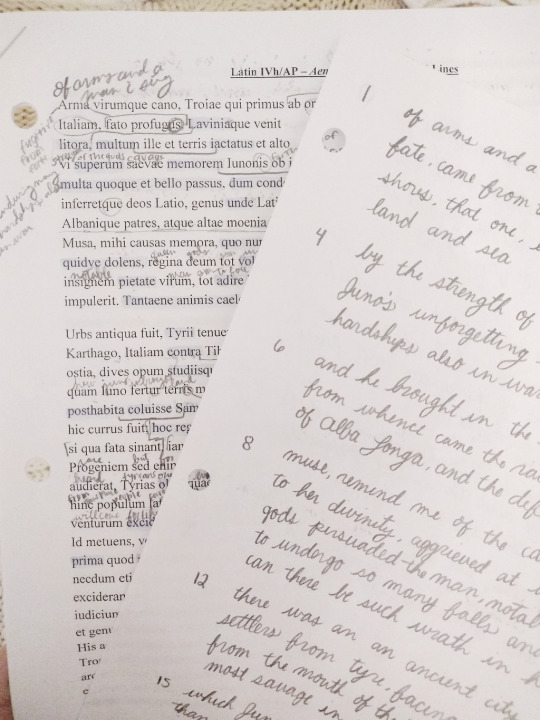 Latin IVh/AP – Aen
Lines
of arms and a
man I sing
Arma virumque cano, Troiae qui primus ab or
Italiam, fato profugus, Laviniaque venit
litora, multum ille et terris iactatus et alto
vi superum saevae memorem Iunonis ob i
multa quoque et bello passus, dum cond
inferretque deos Latio, genus unde Lat
Albanique patres, atque altae moenia
Musa, mihi causas memora, quo nu
quidve dolens, regina deum tot vol
notable
insignem pietate virum, tot adire
impulerit. Tantaene animis cael
Urbs antiqua fuit, Tyrii tenue
Karthago, Italiam contra Tib
ostia, dives opum studiisqu
quam Iuno fertur terris m
posthabita coluisse Sam
hic currus fuit; hoc reg
si qua fata sinant, iam
Progeniem sed enim
audierat, Tyrias ol quae
hinc populum lat
venturum excid
Id metuens, ve
prima quod
necdum eti
excideran
iudicium
et genu
His a
Tro
arc
1 of arms and a
fate, came from t
shores, that one,
land and sea
4 by the strength of
Juno's unforgetting
hardships also in war
6 and he brought in the
from whence came the ra
of Alba Longa, and the def
8 muse, remind me of the ca
to her divinity, aggrieved at
gods persuaded the man, notab
to undergo so many falls and
can there be such wrath in h
12 there was an an ancient city
settlers from tyre, facing
from the mouth of the
most savage in
15 which Jun
than